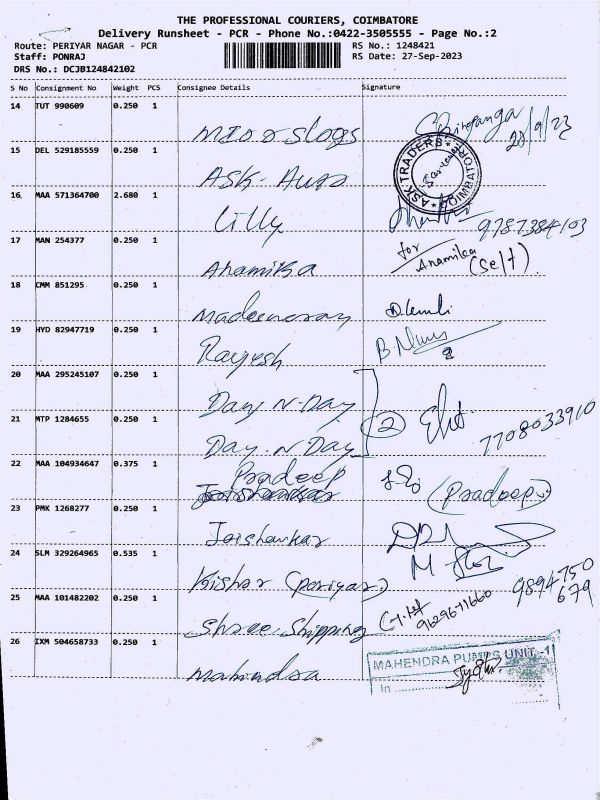 THE PROFESSIONAL COURIERS, COIMBATORE
Delivery Runsheet - PCR - Phone No.:0422-3505555 - Page No.:2
Route: PERIYAR NAGAR - PCR RS No.: 1248421
Staff: PONRAJ RS Date: 27-Sep-2023
DRS No.: DCJB124842102
S No Consignment No Weight PCS Consignee Details Signature
14 TUT 990609 0.250 1
15 DEL 529185559 0.250 1
ASK TRADERS COIMBATORE
ASK-Auto
16 MAA 571364700 2.680 1
Lilly 9787384103
17 MAN 254377 0.250 1
for Anamika (self)
Anamika
18 CMM 851295 0.250 1
19 HYD 82947719 0.250 1
Rayesh
20 MAA 295245107 0.250 1
Day N-Day
21 MTP 1284655 0.250 1
2 7708033910
Day.N Day
22 MAA 104934647 0.375 1
Pradeep (Pradeep)
23 PMK 1268277 0.250 1
Jaishankar
24 SLM 329264965 0.535 1
Kishor (Periyar) 9894750679
25 MAA 101482202 0.250 1
Shree Shipping 9629671660
26 IXM 504658733 0.250 1
MAHENDRA PUMPS UNIT-1
Mahindra